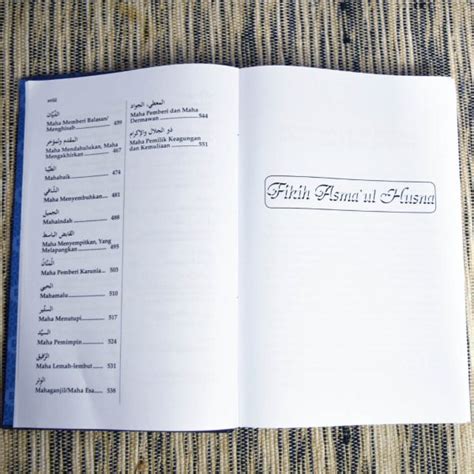 xviii
الدَّيَّان
Maha Memberi Balasan/
Menghisab ........ 459
المقدم والمؤخر
Maha Mendahulukan, Maha
Mengakhirkan ........ 467
الطيب
Mahabaik ........ 474
الشافي
Maha Menyembuhkan ........ 481
الجميل
Mahaindah ........ 488
القابض الباسط
Maha Menyempitkan, Yang
Melapangkan ........ 495
المنان
Maha Pemberi Karunia ........ 503
الحيي
Mahamalu ........ 510
الستير
Maha Menutupi ........ 517
السيد
Maha Pemimpin ........ 524
الرفيق
Maha Lemah-lembut ........ 531
الوتر
Mahaganjil/Maha Esa ........ 538
المعطي، الجواد
Maha Pemberi dan Maha
Dermawan ........ 544
ذو الجلال والإكرام
Maha Pemilik Keagungan
dan Kemuliaan ........ 551
Fikih Asma'ul Husna